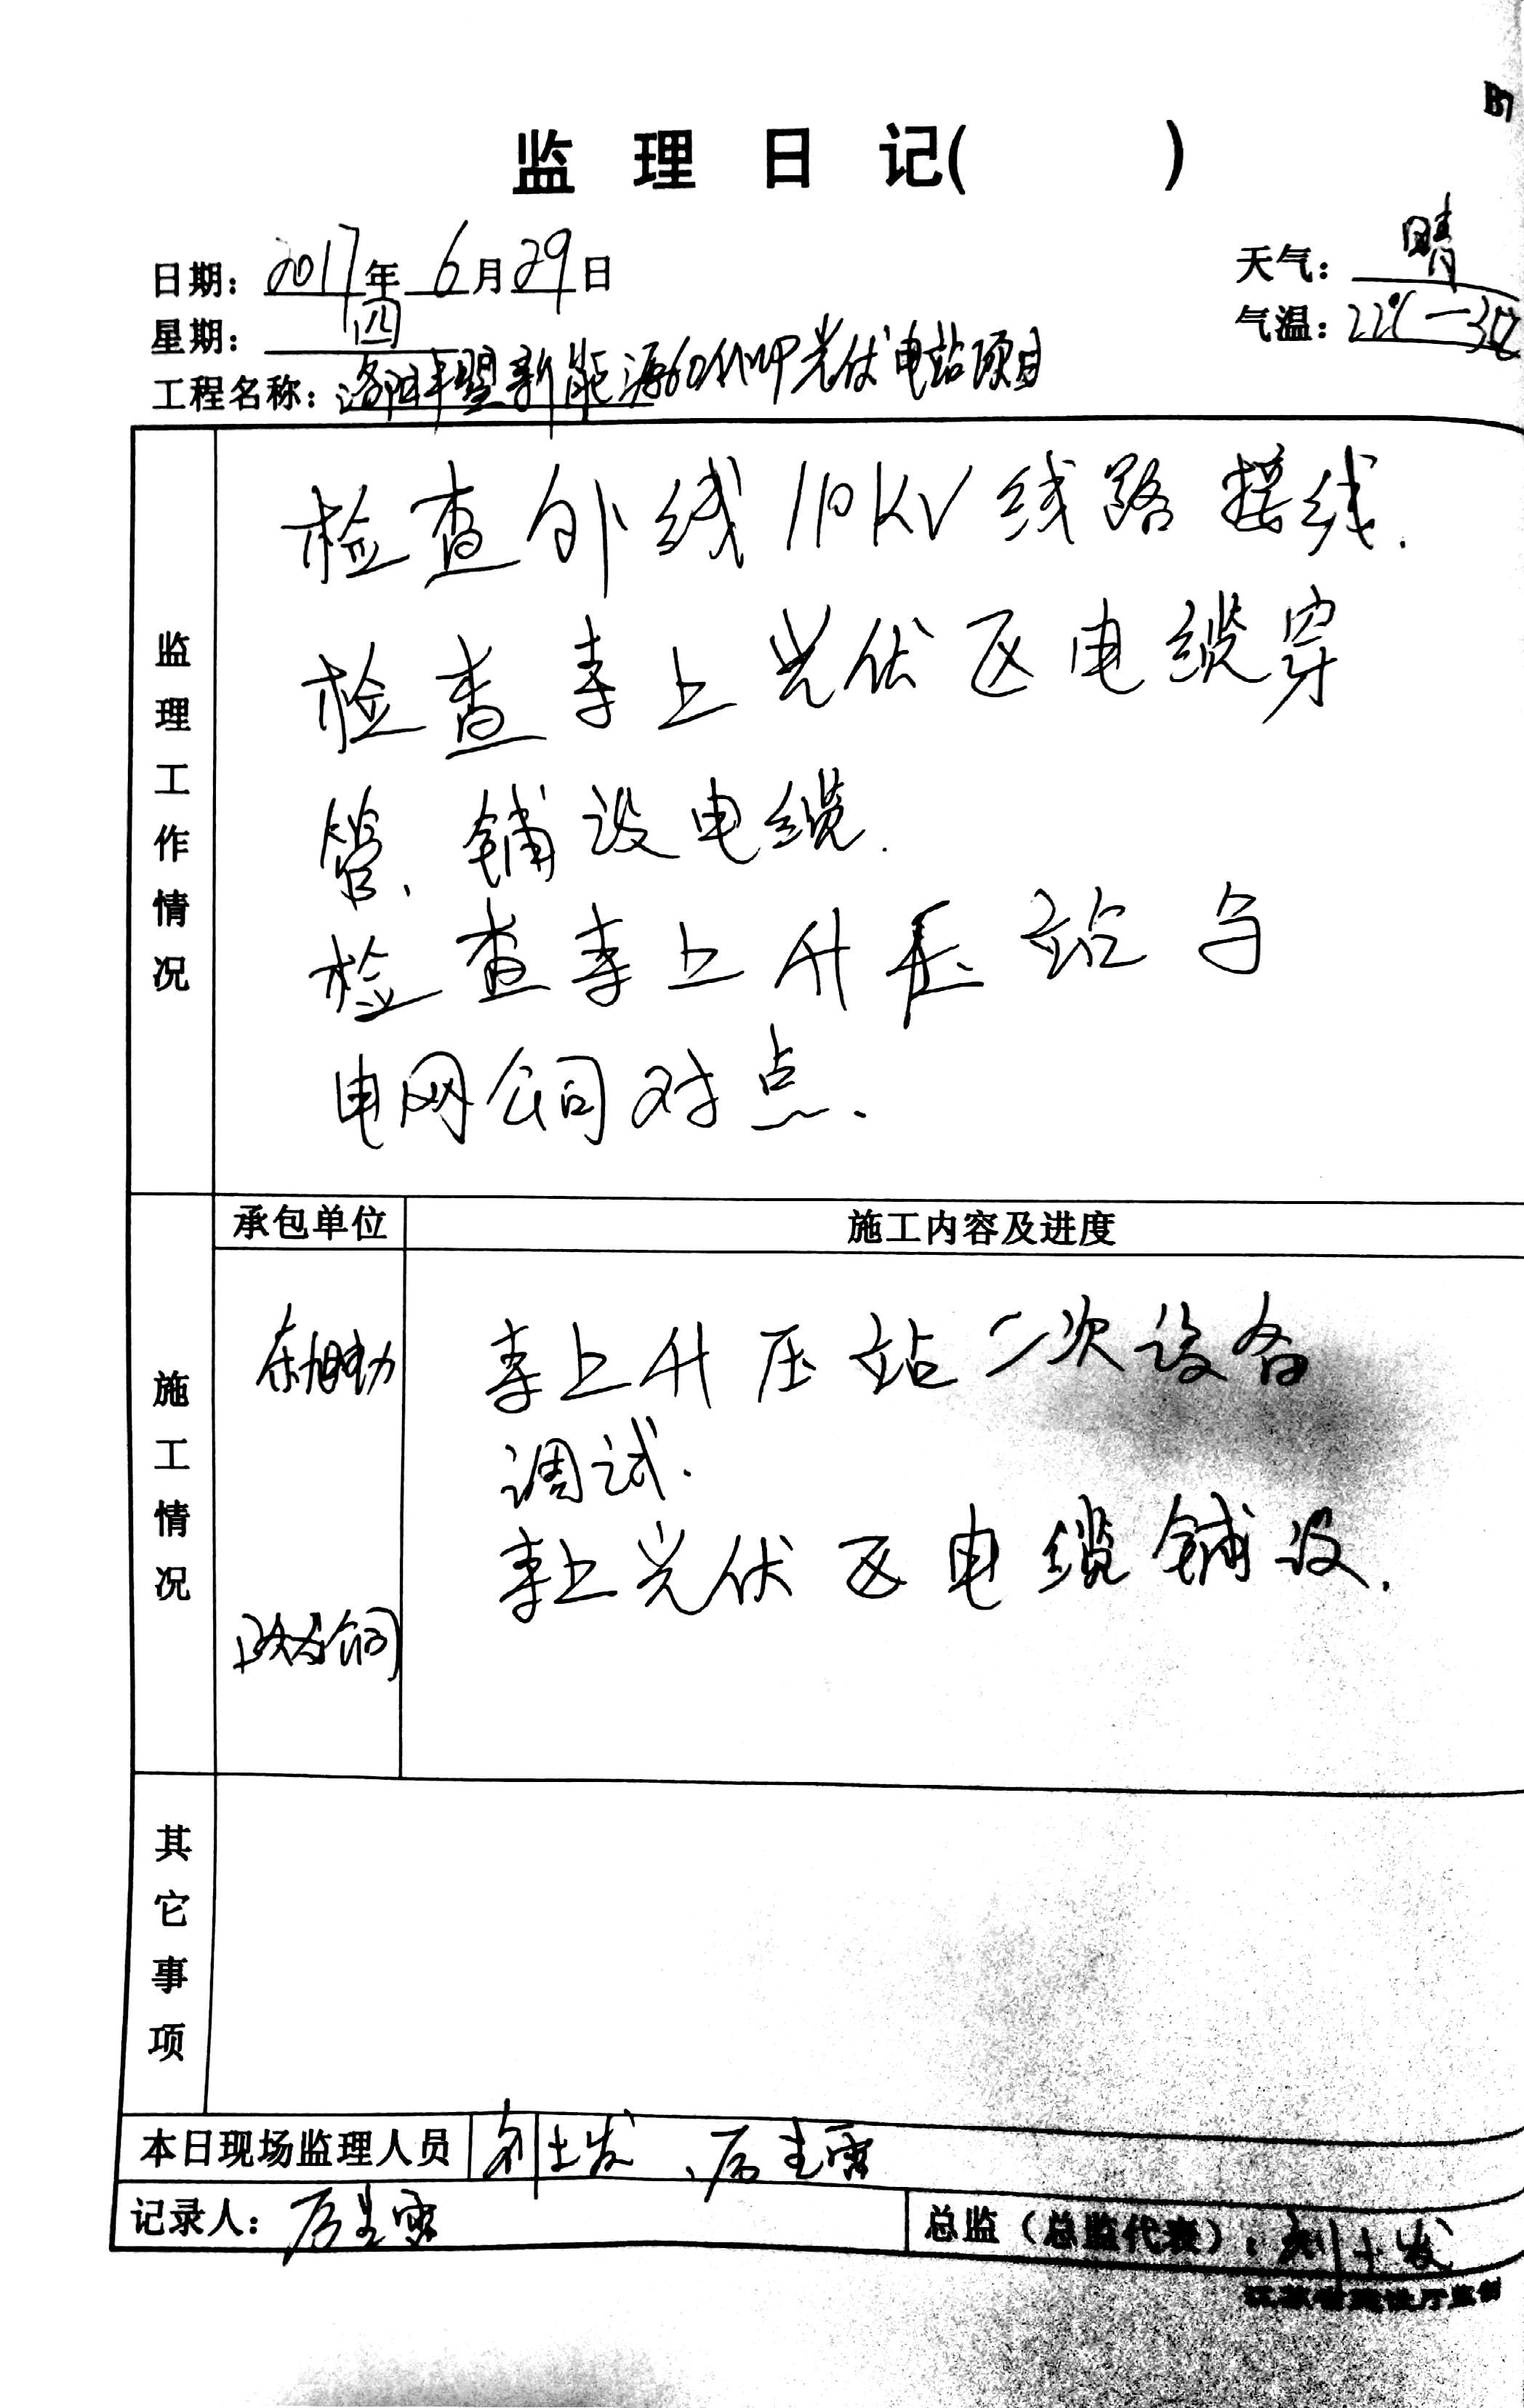 B7
监 理 日 记( )
日期: 2017年 6月29日
天气: 晴
星期: 四
气温: 22℃—
工程名称: 洛阳丰翌新能源60MWP光伏电站项目
监理工作情况
检查外线110KV线路接线.
检查李上光伏区电缆穿
管、铺设电缆.
检查李上升压站与
电网公司对点.
施工情况
承包单位
施工内容及进度
李上升压站二次设备
调试.
李上光伏区电缆铺设.
其它事项
本日现场监理人员 刘士发、
记录人:
总监(总监代表): 刘士发
江苏省建设厅监制